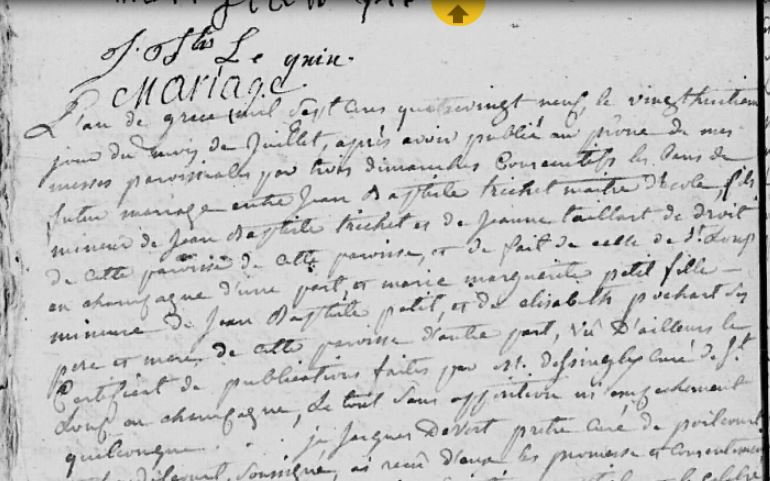 Le quin.
Mariage
L'an de grace mil sept cens quatrevingt neuf, le vingthuitieme
jour du mois de Juillet, après avoir publié au prône de mes
messes paroissiales par trois dimanches Consecutifs les bans de
futur mariage entre Jean Baptiste trichet maitre d'école, fils
mineur de Jean Baptiste trichet et de Jeanne taillart de droit
de cette paroisse de cette paroisse, et de fait de celle de St. Loup
en champagne d'une part, et marie marguerite petit fille
mineure de Jean Baptiste petit, et de elisabeth pochart ses
pere et mere de cette paroisse d'autre part, Vû D'ailleurs le
Certificat de publications faites par curé de St.
Loup en champagne, Le tout sans opposition ni empechement
quelconque. je Jacques Devert pretre curé de poilcourt
soussigné, ai recu d'eux les promesse et consentement